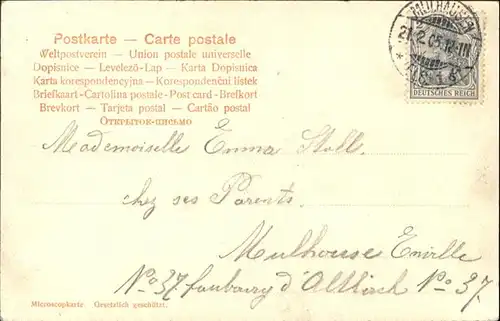 Postkarte — Carte postale
Weltpostverein — Union postale universelle
Dopisnice — Levelező-Lap — Karta Dopisnica
Karta korespondencyjna — Korespondenční lístek
Briefkaart - Cartolina postale - Post card - Brefkort
Brevkort — Tarjeta postal — Cartão postal
Открытое-письмо
MÜLHAUSEN
21.2.05
DEUTSCHES REICH
Mademoiselle Emma Stoll
chez ses Parents.
Mulhouse Enville
No 37 faubourg d'Altkirch No 37.
Microscopkarte Gesetzlich geschützt.